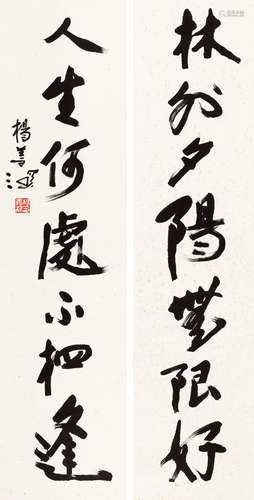 林外夕陽無限好
人生何處不相逢
楊善深